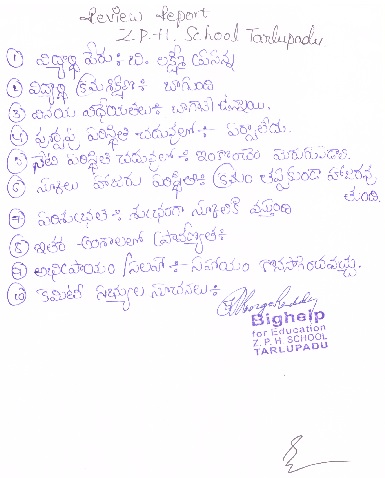 Review Report
Z.P.H. School Tarlupadu
① విద్యార్థి పేరు :- చి. లక్ష్మీ యసస్వి
② విద్యార్థి క్రమశిక్షణ :- బాగుంది
③ వినయ విధేయతలు :- బాగానే ఉన్నాయి.
④ పూర్వపు పరిస్థితి చదువులో :- పర్వాలేదు.
⑤ నేటి పరిస్థితి చదువులో :- ఇంకొంచెం మెరుగుపడాలి.
⑥ స్కూలు హాజరు పరిస్థితి :- క్రమం తప్పకుండా హాజరవు
తుంది.
⑦ పరిశుభ్రత :- శుభ్రంగా స్కూలుకి వస్తుంది
⑧ ఇతర అంశాలలో ప్రావీణ్యత :-
⑨ అభిప్రాయం / సలహా :- సహాయం కొనసాగించవచ్చు.
⑩ కమిటీ సభ్యుల సూచనలు :-
Bighelp
for Education
Z. P. H SCHOOL
TARLUPADU